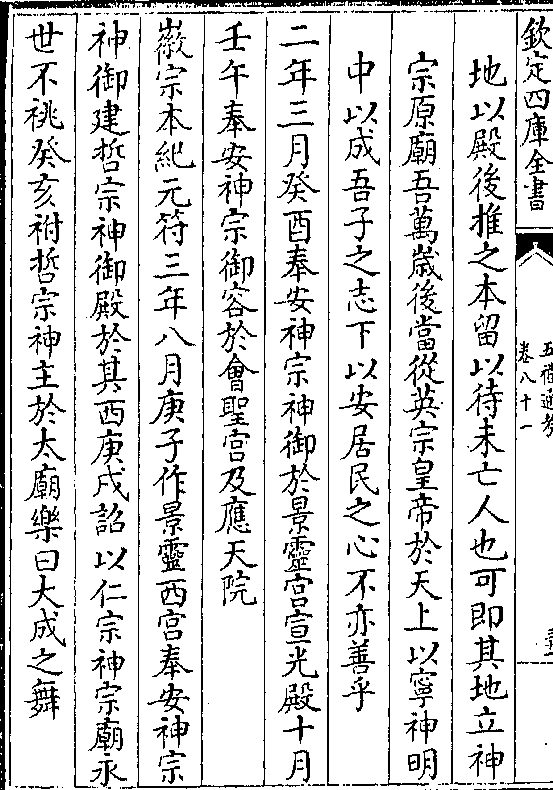 欽定四庫全書
五禮通考
卷八十一
地以殿後推之本留以待未亡人也可即其地立神
宗原廟吾萬歲後當從英宗皇帝於天上以寧神明
中以成吾子之志下以安居民之心不亦善乎
二年三月癸酉奉安神宗神御於景靈宫宣光殿十月
壬午奉安神宗御容於會聖宫及應天院
徽宗本紀元符三年八月庚子作景靈西宫奉安神宗
神御建哲宗神御殿於其西庚戌詔以仁宗神宗廟永
世不祧癸亥祔哲宗神主於太廟樂曰大成之舞